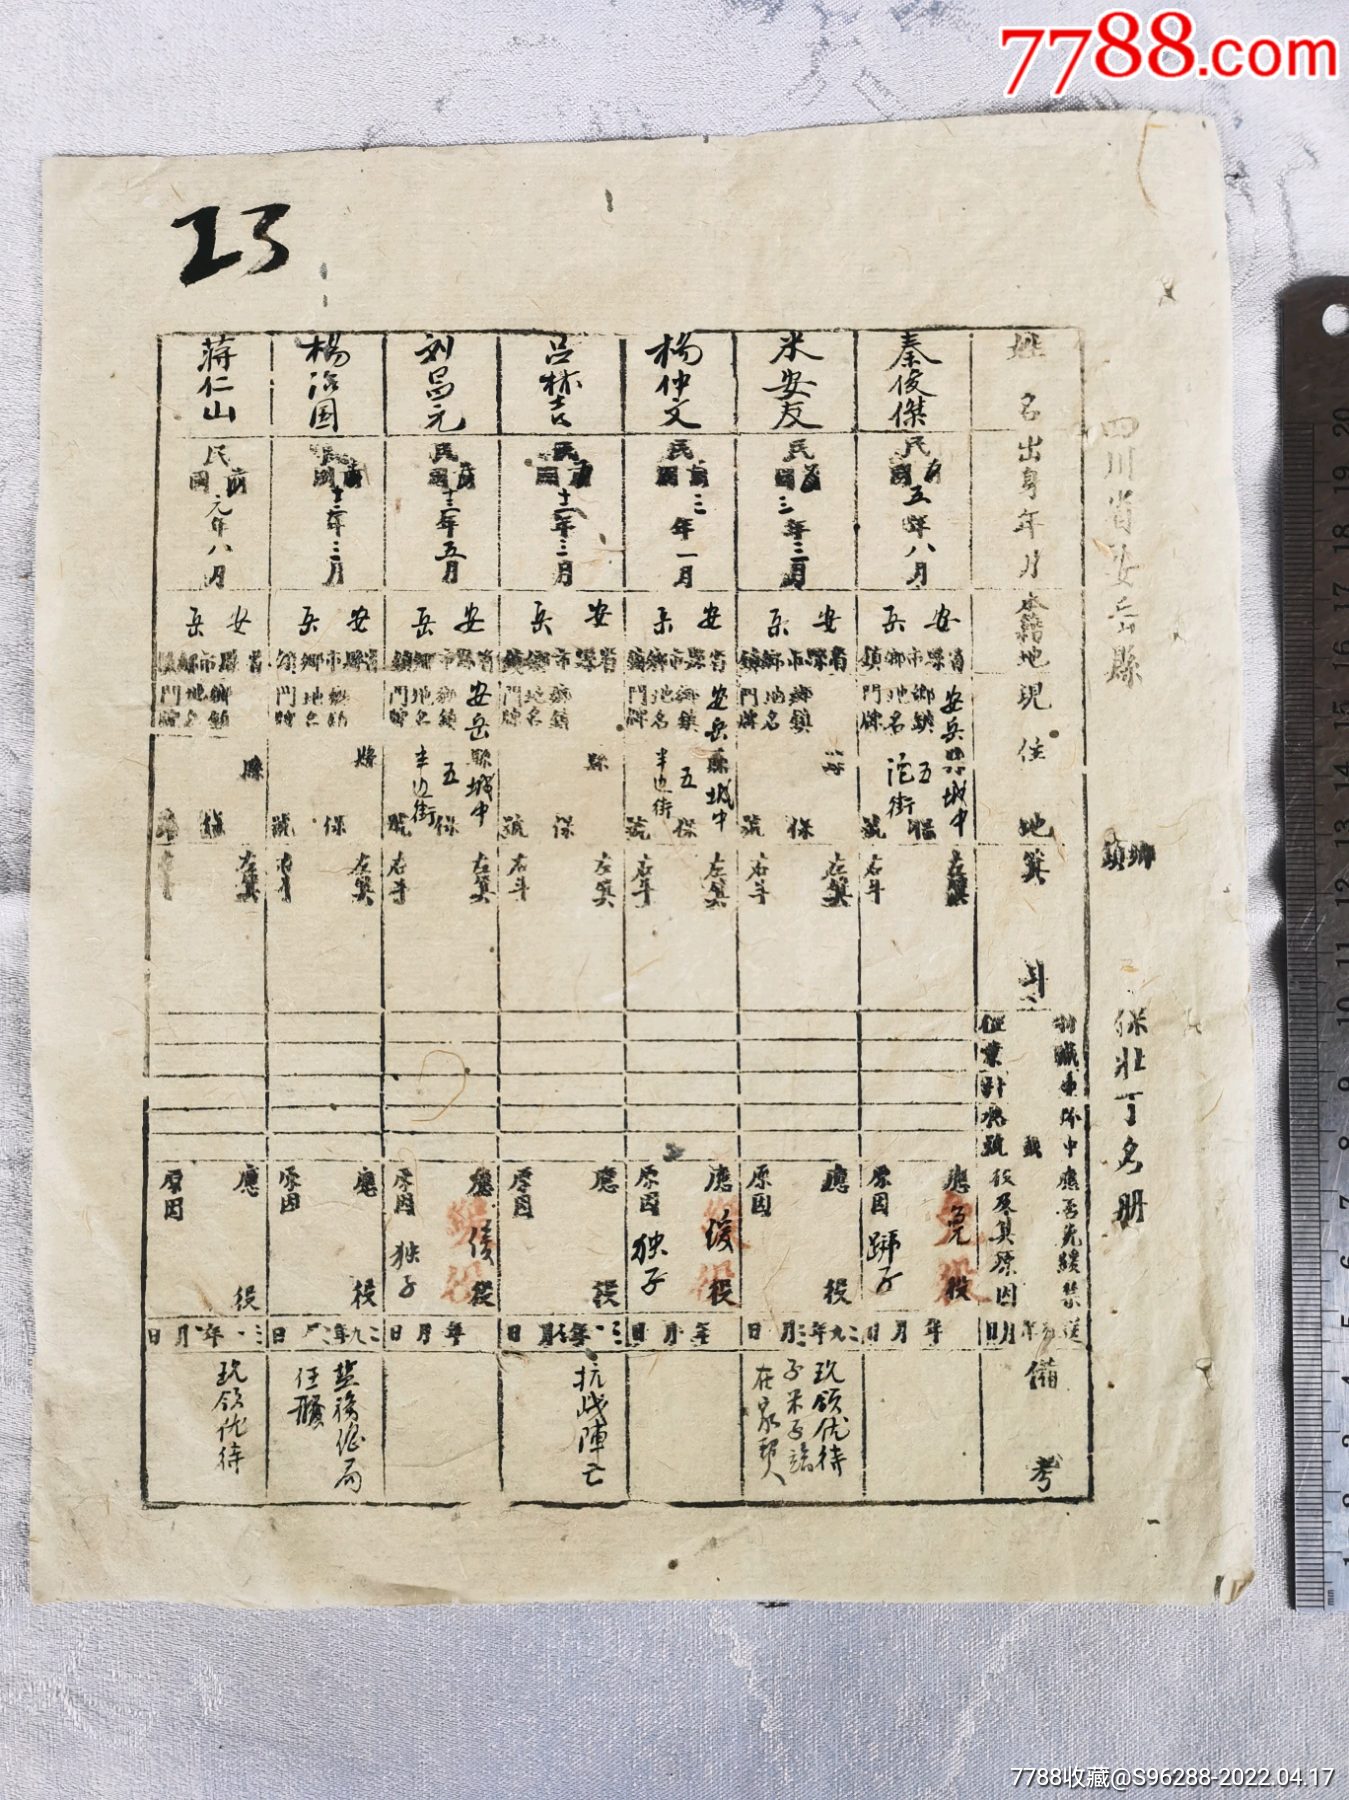 7788.com
23
四川省安岳縣 鄉鎮 保壯丁名册
姓名 出身年月 本籍地 現住地 箕斗
應否免緩禁役及其原因
備考
秦俊傑
民國前
五年八月
安岳
省縣市鄉鎮
安岳縣城中
鄉鎮 五保
地名 沱街
門牌 號
左箕
右斗
應免役
原因 跡子
年月日
米安友
民國前
三年三月
安岳
省縣市鄉鎮
縣
鄉鎮 保
地名
門牌 號
左箕
右斗
應 役
原因
玖領优待
楊仲文
民國前
三年一月
安岳
省縣市鄉鎮
安岳縣城中
鄉鎮 五保
地名 半边街
門牌 號
左箕
右斗
應緩役
原因 独子
年月日
呂林吉
民國前
十二年三月
安岳
省縣市鄉鎮
縣
鄉鎮 保
地名
門牌 號
左箕
右斗
應 役
原因
抗战陣亡
刘昌元
民國前
十三年五月
安岳
省縣市鄉鎮
安岳縣城中
鄉鎮 五保
地名 半边街
門牌 號
左箕
右斗
應緩役
原因 独子
年月日
楊治国
民國前
十二年三月
安岳
省縣市鄉鎮
縣
鄉鎮 保
地名
門牌 號
左箕
右斗
應 役
原因
蔣仁山
民國前
元年八月
安岳
省縣市鄉鎮
縣
鄉鎮 保
地名
門牌 號
左箕
右斗
應 役
原因
玖領优待
7788收藏@S96288-2022.04.17